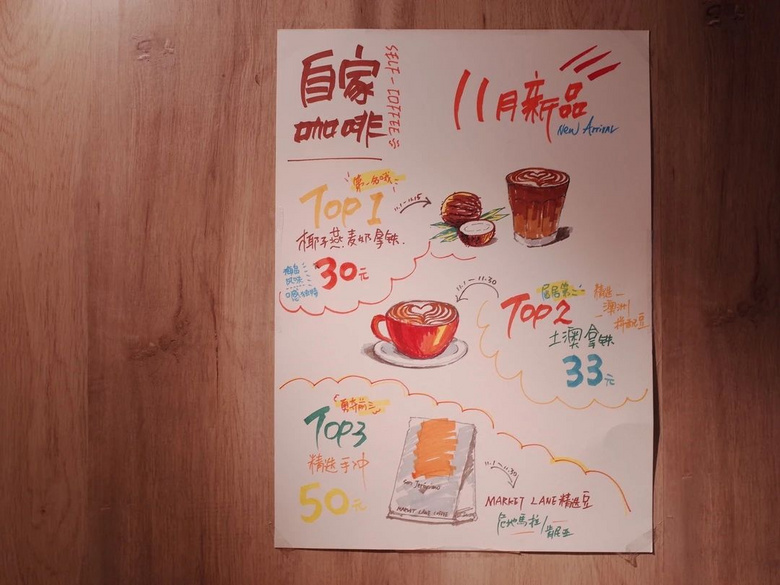 自家
咖啡
SELF-COFFEE
11月新品
New Arrival
第一名哦
Top 1
11.1-11.15
椰子燕麦奶拿铁
30元
11.1-11.30
居居第二
Top2
精选
澳洲
拼配豆
土澳拿铁
33元
勇夺前三
Top3
精选手冲
50元
San Jeronimo
MARKET LANE COFFEE
11.1-11.30
MARKET LANE 精选豆
危地馬拉/
肯尼亚